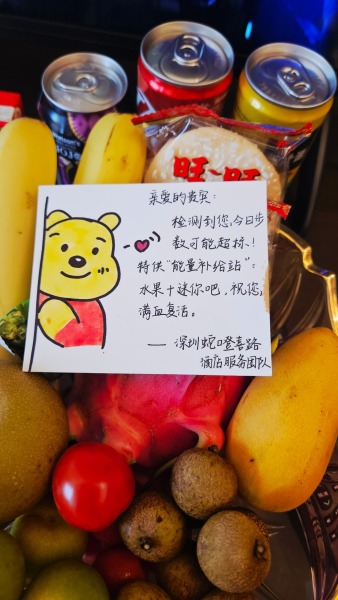 旺旺
亲爱的贵宾：
检测到您,今日步
数可能超标~!
特供"能量补给站"：
水果+迷你吧，祝您
满血复活。
—— 深圳蛇口登喜路
酒店服务团队